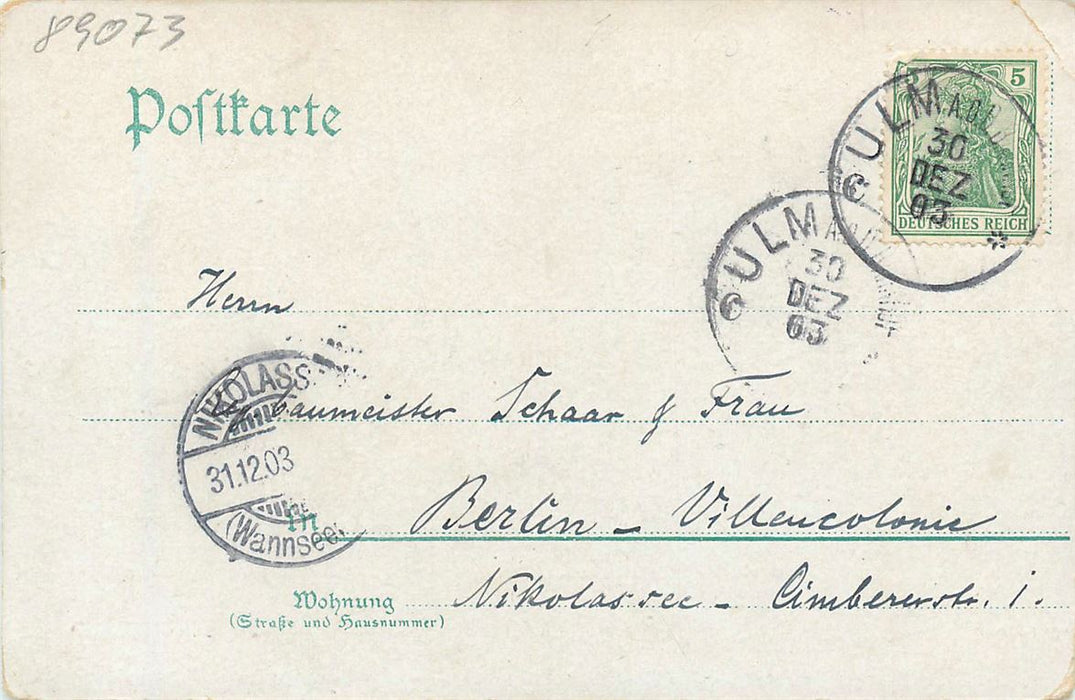 89073
Postkarte
5
DEUTSCHES REICH
ULM A.D.
30
DEZ
03
ULM A.D.
30
DEZ
03
Herrn
baumeister Schaar & Frau
NIKOLASS
31.12.03
(Wannsee)
in Berlin - Villencolonie
Wohnung Nikolassee - Cimbernstr. 1.
(Straße und Hausnummer)